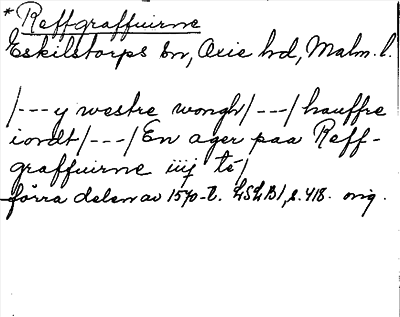 * Reffgraffuirne
Eskilstorps sn, Oxie hd, Malm. l.
/---y westre wongh/---/hauffre
iordt/---/En ager paa Reff-
graffuirne iiij te/
förra delen av 1570-t. LSLB1, s. 418. orig.